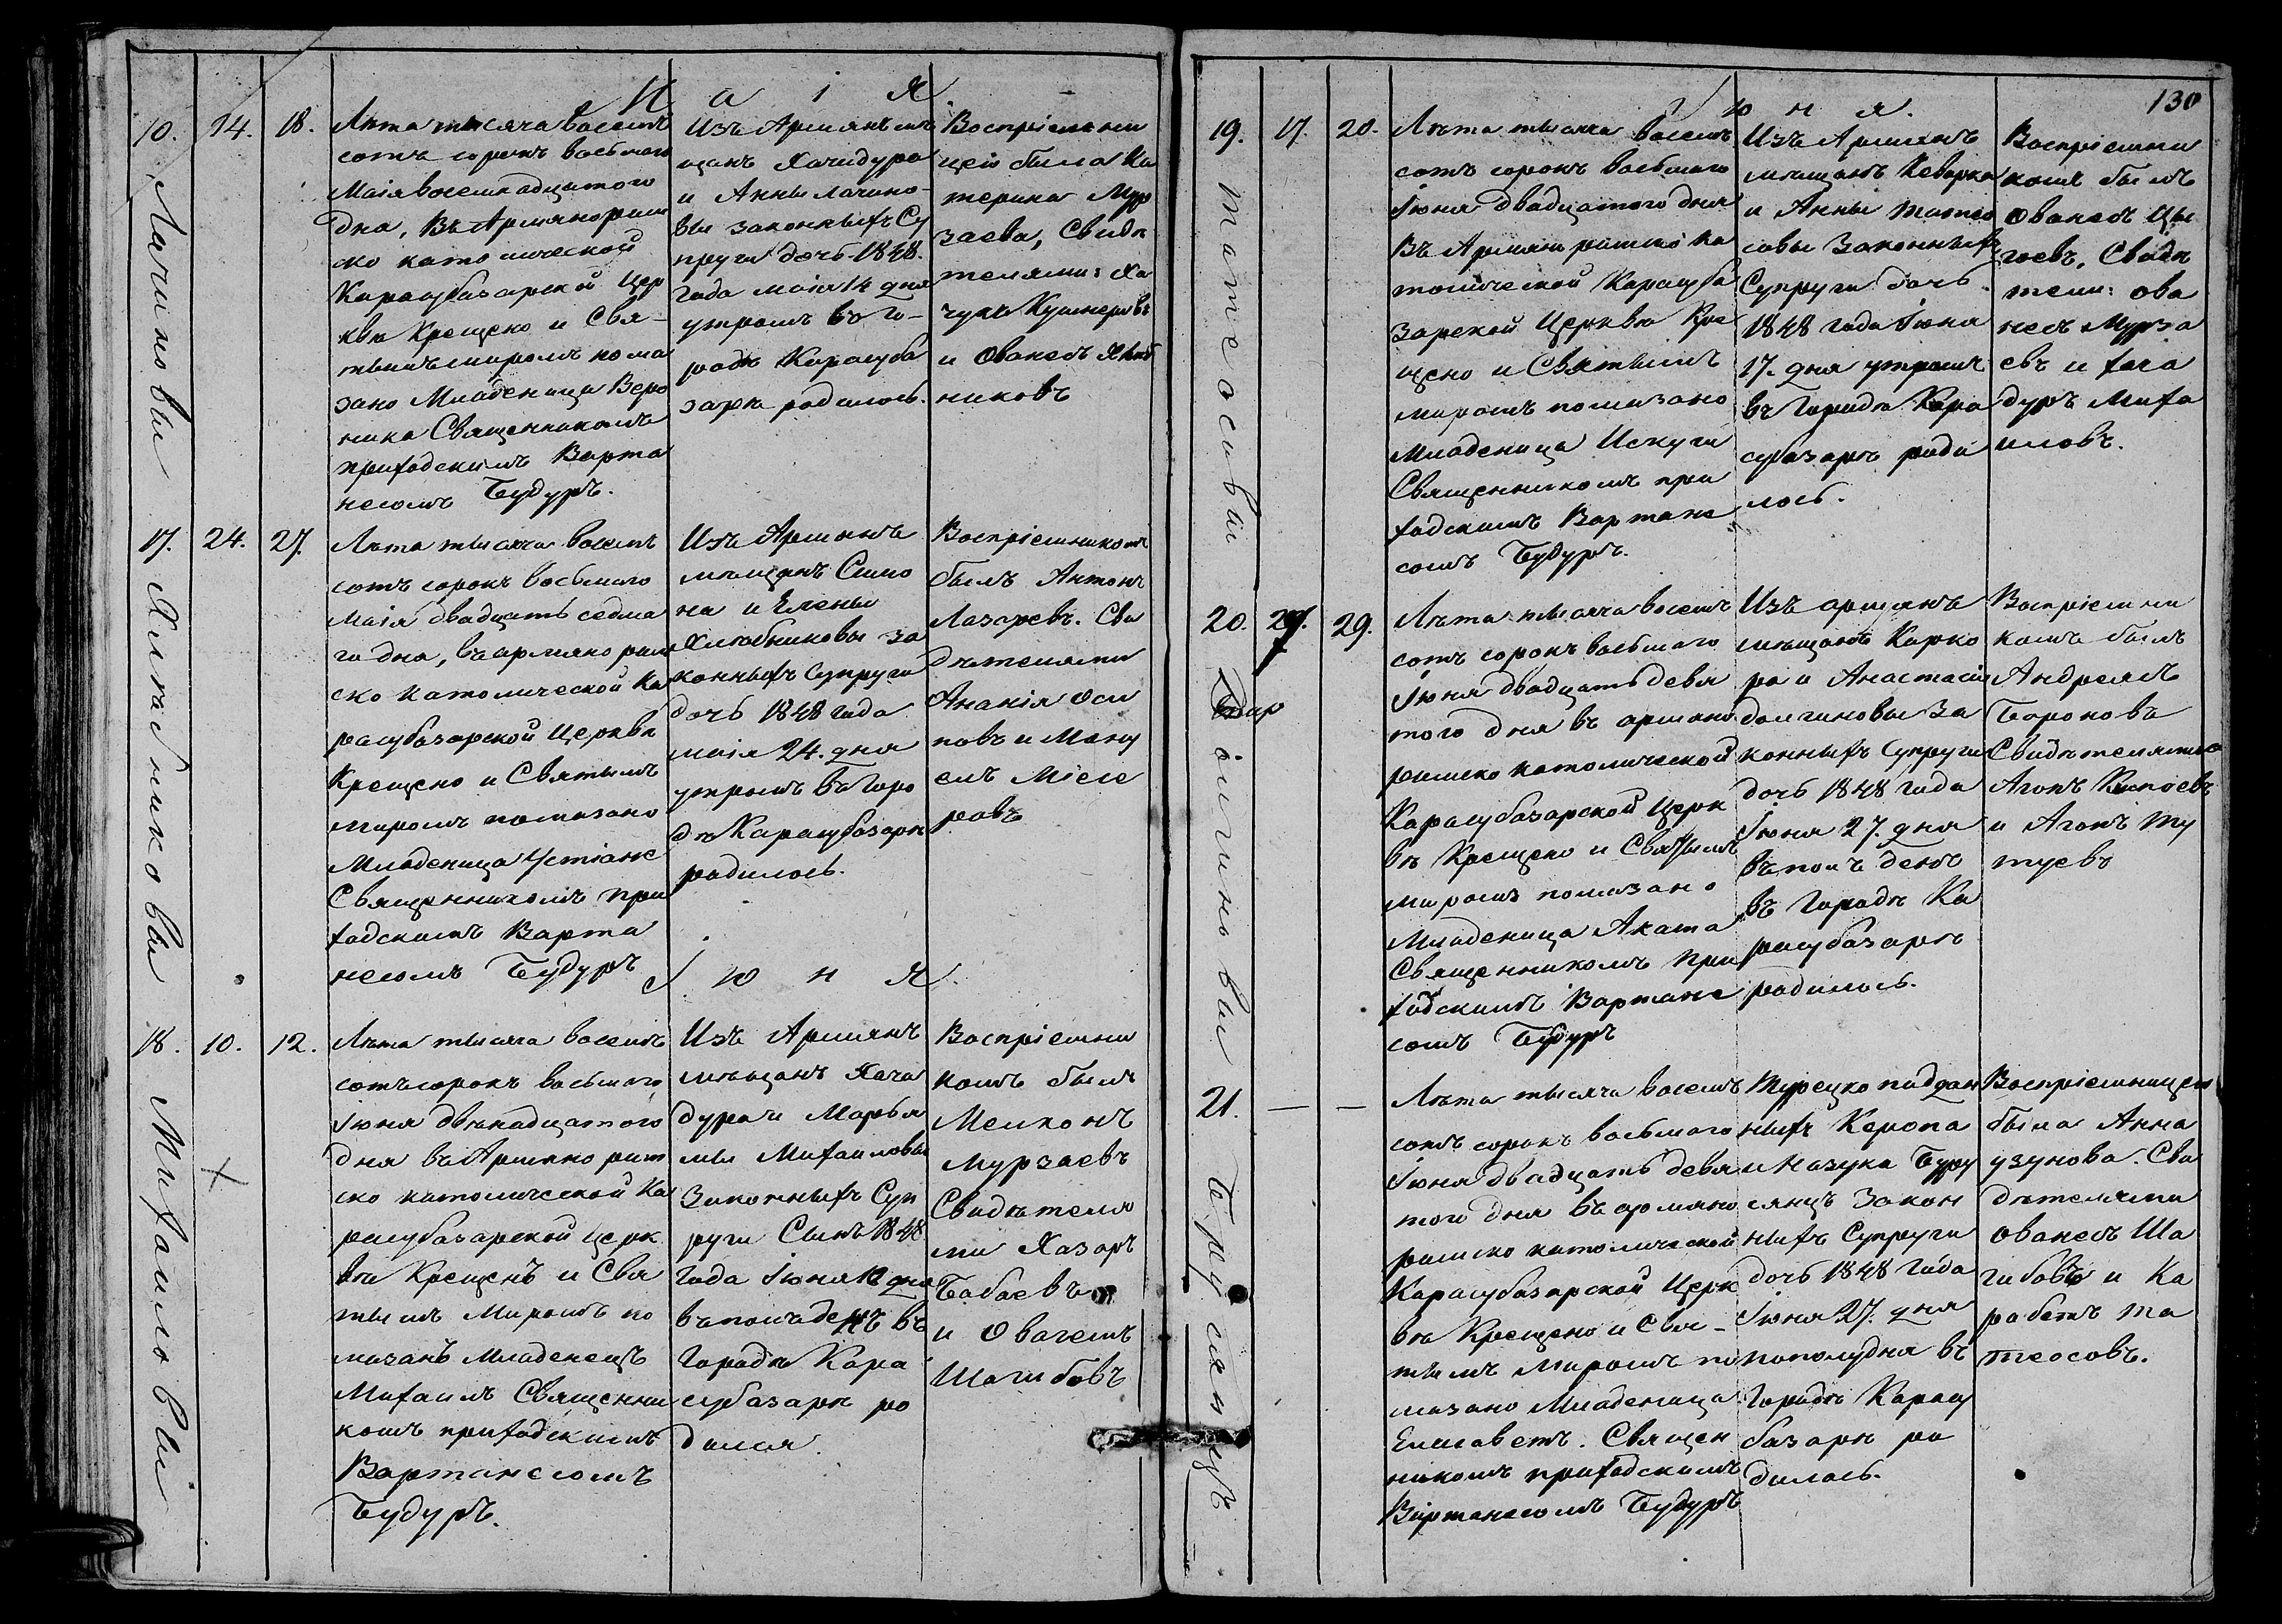 Маія
10. 14. 18.
Лачиновы
Лѣта тысяча восемь
сотъ сорокъ восьмаго
Маія восемнадцатого
дна, Въ Армяно рим
ско католической
Карасубазарской Цер
кви Крещено и Свя-
тымъ миромъ пома
зано Младеница Веро
ника Священникомъ
приходскимъ Варта
несомъ Будуръ.
Изъ Армянъ мѣ
щанъ Хачидура
и Анны Лачино-
вы законныхъ Су
пруги дочь 1848.
Года маія 14 дня
утромъ въ Го-
родѣ Карасуба
зарѣ родилось.
Воспріемни
цей была Ка
терина Мур
заева, Свидѣ
телями: Ха
чукъ Кушнеровъ
и Ованесъ Хлѣб
никовъ
17. 24. 27.
Хлѣбниковы
Лѣта тысяча восемь
сотъ сорокъ восьмаго
маія двадцать седма
го дна, въ армяно рим
ско католической Ка
расубазарской Церквѣ
Крещено и Святымъ
миромъ помазано
Младеница Устіане
Священникомъ при
ходскимъ Варта
несомъ Будуръ
Изъ Армянъ
мѣщанъ Симо
на и Елены
Хлѣбниковы за
конныхъ супруги
дочь 1848 года
маія 24. дня
утромъ въ Горо
дѣ Карасубазарѣ
родилось.
Воспріемникомъ
былъ Антонъ
Лазаревъ. Сви
дѣтелями
Ананія Оси
повъ и Ману
елъ Місе
ровъ
Іюня
18. 10. 12.
Михаиловы
Лѣта тысяча восемь
сотъ сорокъ восьмаго
Іюня двѣнадцатого
дня въ Армяно рим
ско католической Ка
расубазарской церк
вѣ Крещенъ и Свя
тымъ Миромъ по
мазанъ Младенецъ
Михаилъ Священни
комъ приходскимъ
Вартанесомъ
Будуръ.
Изъ Армянъ
мѣщанъ Хача
дура и Марья
мы Михаиловы
Законныхъ Суп
руги Сынъ 1848
Года Іюня 10 дня
въ полъ денъ въ
Городѣ Кара
субазарѣ ро
дился.
Воспріемни
комъ былъ
Мелконъ
Мурзаевъ
Свидѣтеля
ми Хазаръ
Бабаевъ
и Овагемъ
Шагибовъ
130
Іюня.
19. 17. 20.
Татеосовы
Лѣта тысяча восемь
сотъ сорокъ восьмаго
Іюня двадцатого дня
Въ Армяно римско ка
толической Карасуба
зарской Церквѣ Кре
щено и Святымъ
миромъ помазано
Младеница Искуги
Священникомъ при
ходскимъ Вартане
сомъ Будуръ.
Изъ Армянъ
мѣщанъ Кеворка
и Анны Татео
совы Законныхъ
Супруги дочь
1848 года Іюня
17. дня утромъ
въ Городѣ Кара
субазарѣ роди
лось.
Воспріемни
комъ былъ
Ованесъ Цы
гоевъ, Свидѣ
тели: Ова
несъ Мурза
евъ и Хача
дуръ Миха
иловъ.
20. 27. 29.
Лѣта тысяча восемь
сотъ сорокъ восьмаго
Іюня двадцать девя
того дня въ армяно
римско католической
Карасубазарской Церк
вѣ Крещено и Святымъ
миромъ помазано
Младеница Аката
Священникомъ При
ходскимъ Вартане
сомъ Будуръ
Изъ армянъ
мѣщанъ Кирко
ра и Анастасіи
долгиновы За
конныхъ Супруги
дочь 1848 года
Іюня 27. дня
въ полъ денъ
въ Городѣ Ка
расубазарѣ
родилось.
Воспріемни
комъ былъ
Андреямъ
Бароновъ
Свидѣтелями
Агопъ Кипоевъ
и Агопъ Ту
туевъ
21. — —
Бурулянцъ
Лѣта тысяча восемь
сотъ сорокъ восьмаго
Іюня двадцать девя
того дня въ армяно
римско католической
Карасубазарской Церк
вѣ Крещено и Свя-
тымъ миромъ по
мазано Младеница
Елисаветъ. Священ
никомъ приходскимъ
Вартанесомъ Будуръ
Турецко поддан
ныхъ Керопа
и Назука Буру
лянцъ Закон
ныхъ Супруги
дочь 1848 Года
Іюня 27. дня
пополудня въ
Городѣ Карасу
базарѣ ро
дилось.
Воспріемницей
была Анна
узунова. Сви
дѣтелями
Ованесъ Ша
гибовъ и Ка
рабетъ Та
теосовъ.